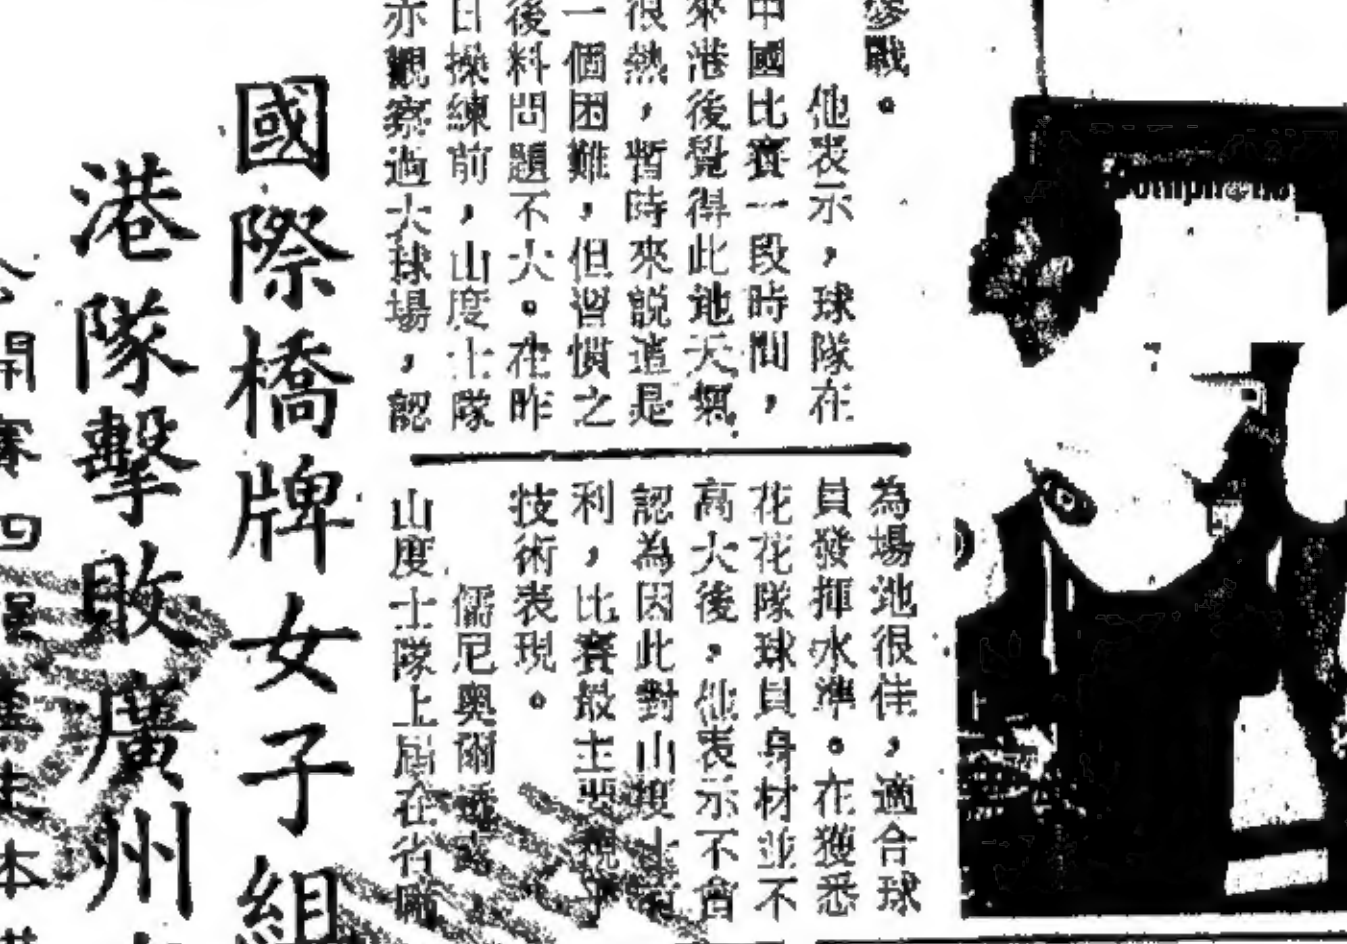 參戰。
他表示，球隊在
中國比賽一段時間，
來港後覺得此地天氣
很熱，暫時來說這是
一個困難，但習慣之
後料問題不大。在昨
日操練前，山度士隊
亦觀察過大球場，認
為場地很佳，適合球
員發揮水準。在獲悉
花花隊球員身材並不
高大後，他表示不會
認為因此對山度士
利，比賽最主要視乎
技術表現。
儒尼奧爾透露
山度士隊上屆在省
國際橋牌女子組
港隊擊敗廣州
開賽四